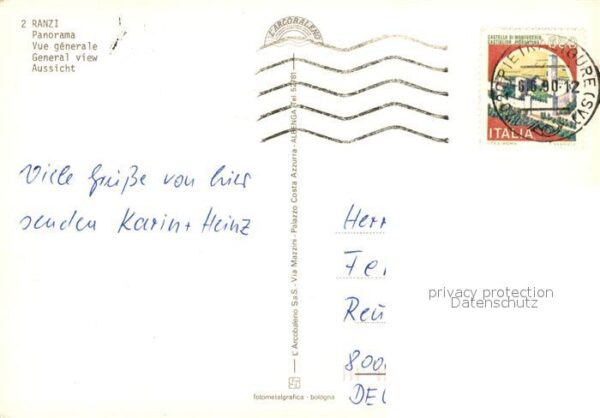 2 RANZI
Panorama
Vue génerale
General view
Aussicht
L'ARCOBALENO
CASTELLO DI MONTECCHIO
CASTIGLION FIORENTINO
6.6.90-12
ITALIA
Viele Grüße von hier
senden Karin + Heinz
L'Arcobaleno S.a.S. - Via Mazzini - Palazzo Costa Azzurra - ALBENGA Tel. 52781
Herr
Fe
privacy protection
Datenschutz
Reu
800
DEU
fotometalgrafica - bologna